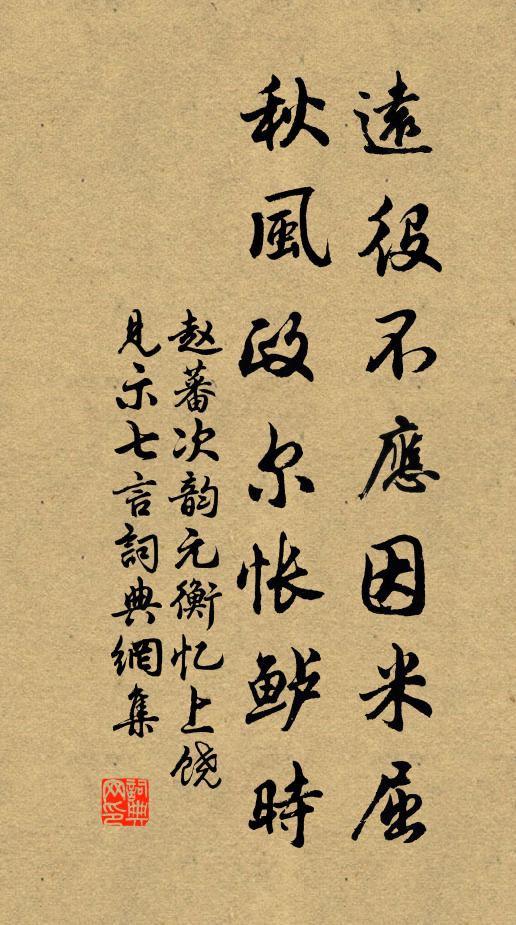 遠役不應因米屈
秋風政尔怅鲈時
赵蕃次韵元衡忆上饶
見示七言詞典網集
詞典网印